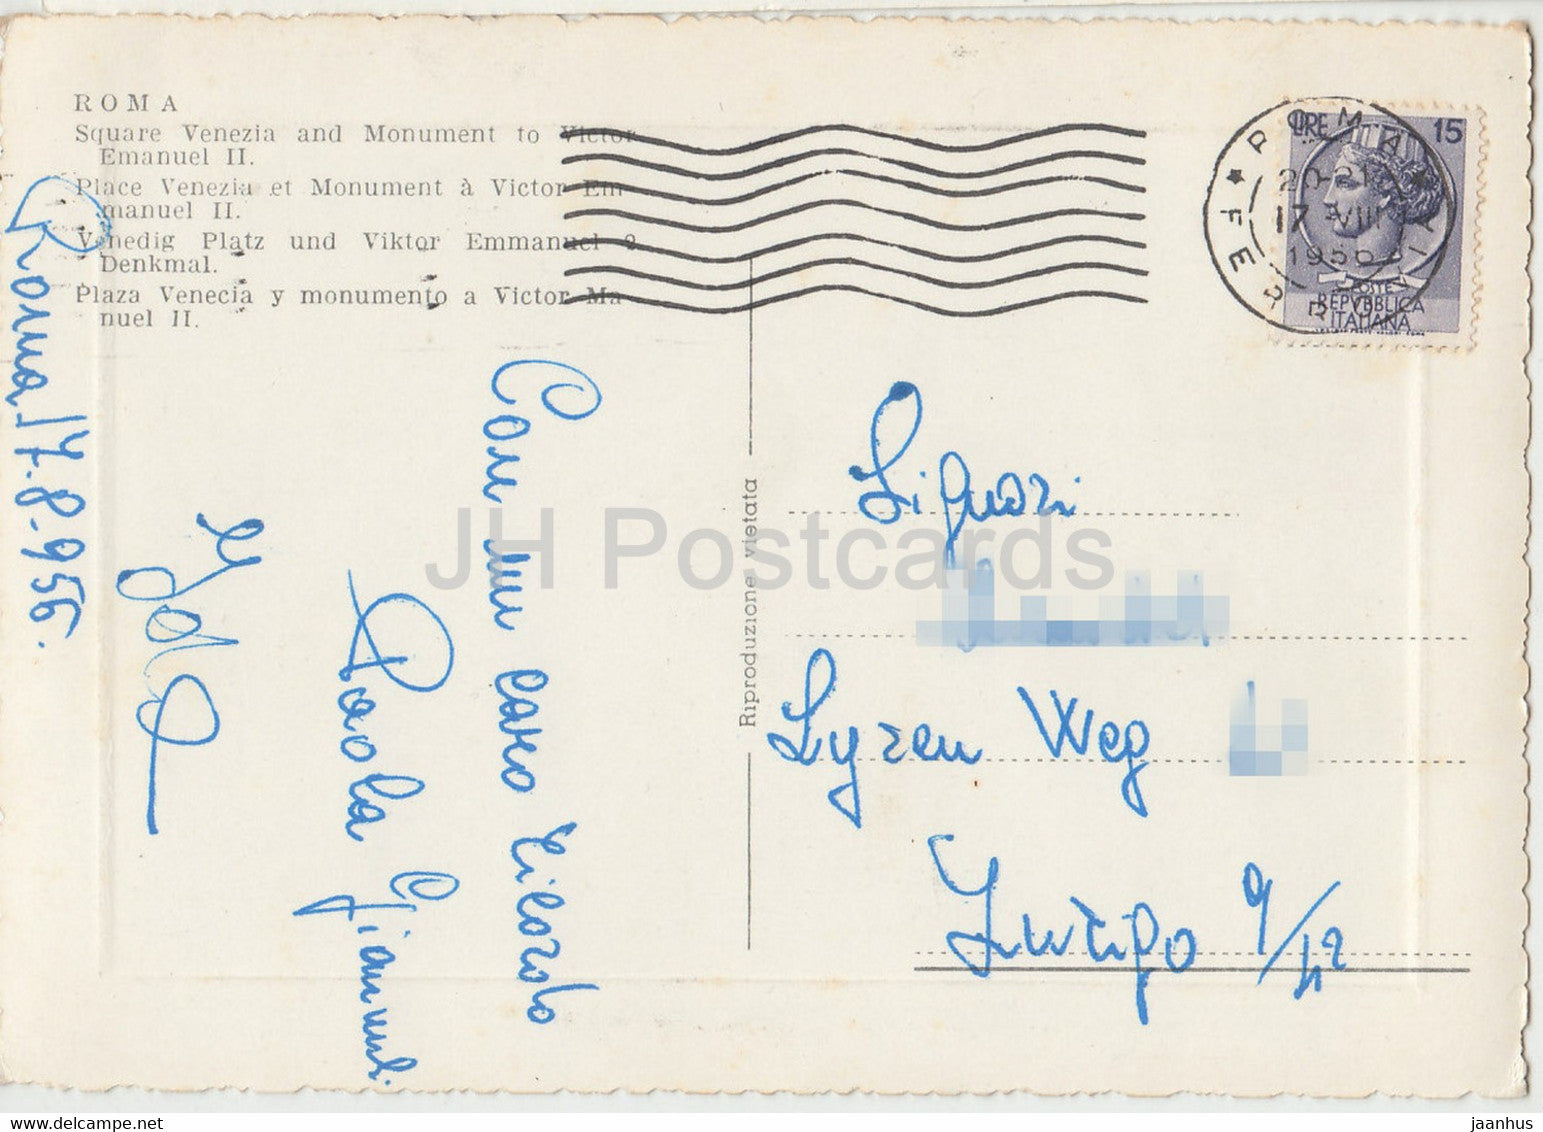 ROMA
Square Venezia and Monument to Victor
Emanuel II.
Place Venezia et Monument à Victor Em-
manuel II.
Venedig Platz und Viktor Emmanuel 2
Denkmal.
Plaza Venecia y monumento a Victor Ma-
nuel II.
Roma 17.8.956.
Con un caro ricordo
Paola Giannul.
Reproduzione vietata
LIRE 15
POSTE
REPVBBLICA
ITALIANA
ROMA
FERROVIA
20-21
17 VIII
1956
Signori
Lyren Weg
Zurigo 9/42
JH Postcards
www.delcampe.net
jaanhus